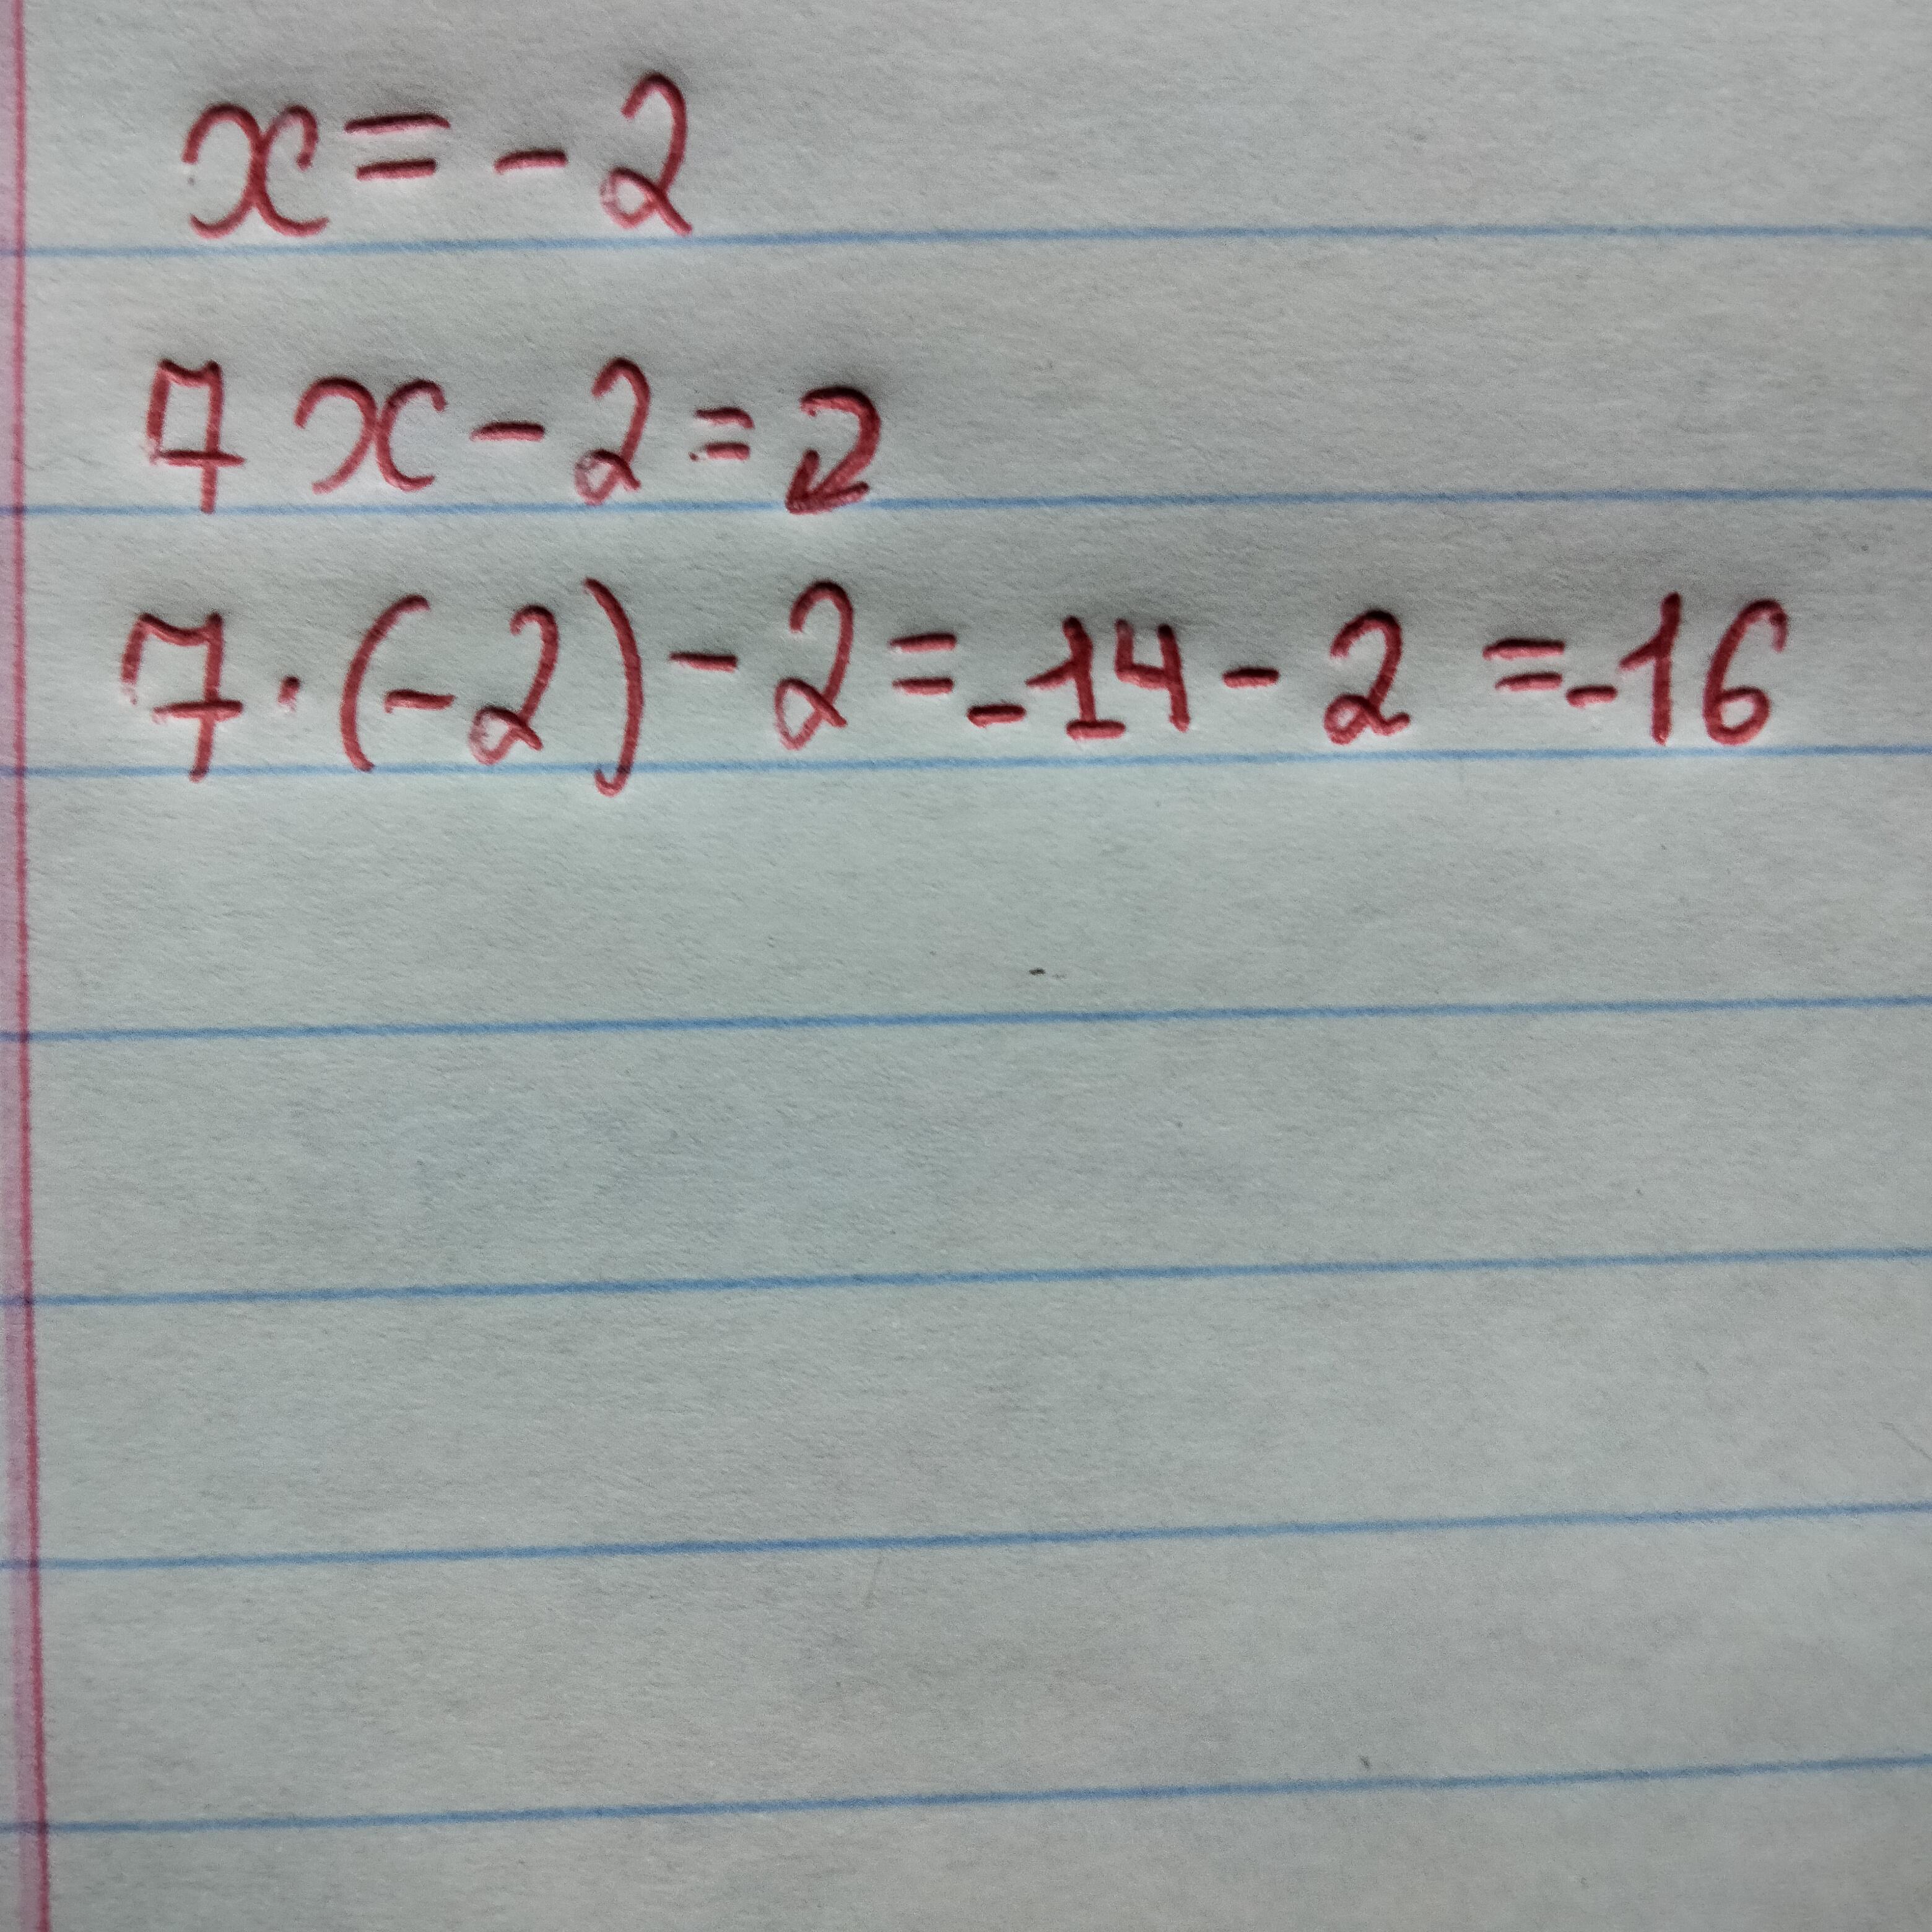 x = - 2
7x - 2 = 2
7 · (-2) - 2 = -14 - 2 = -16